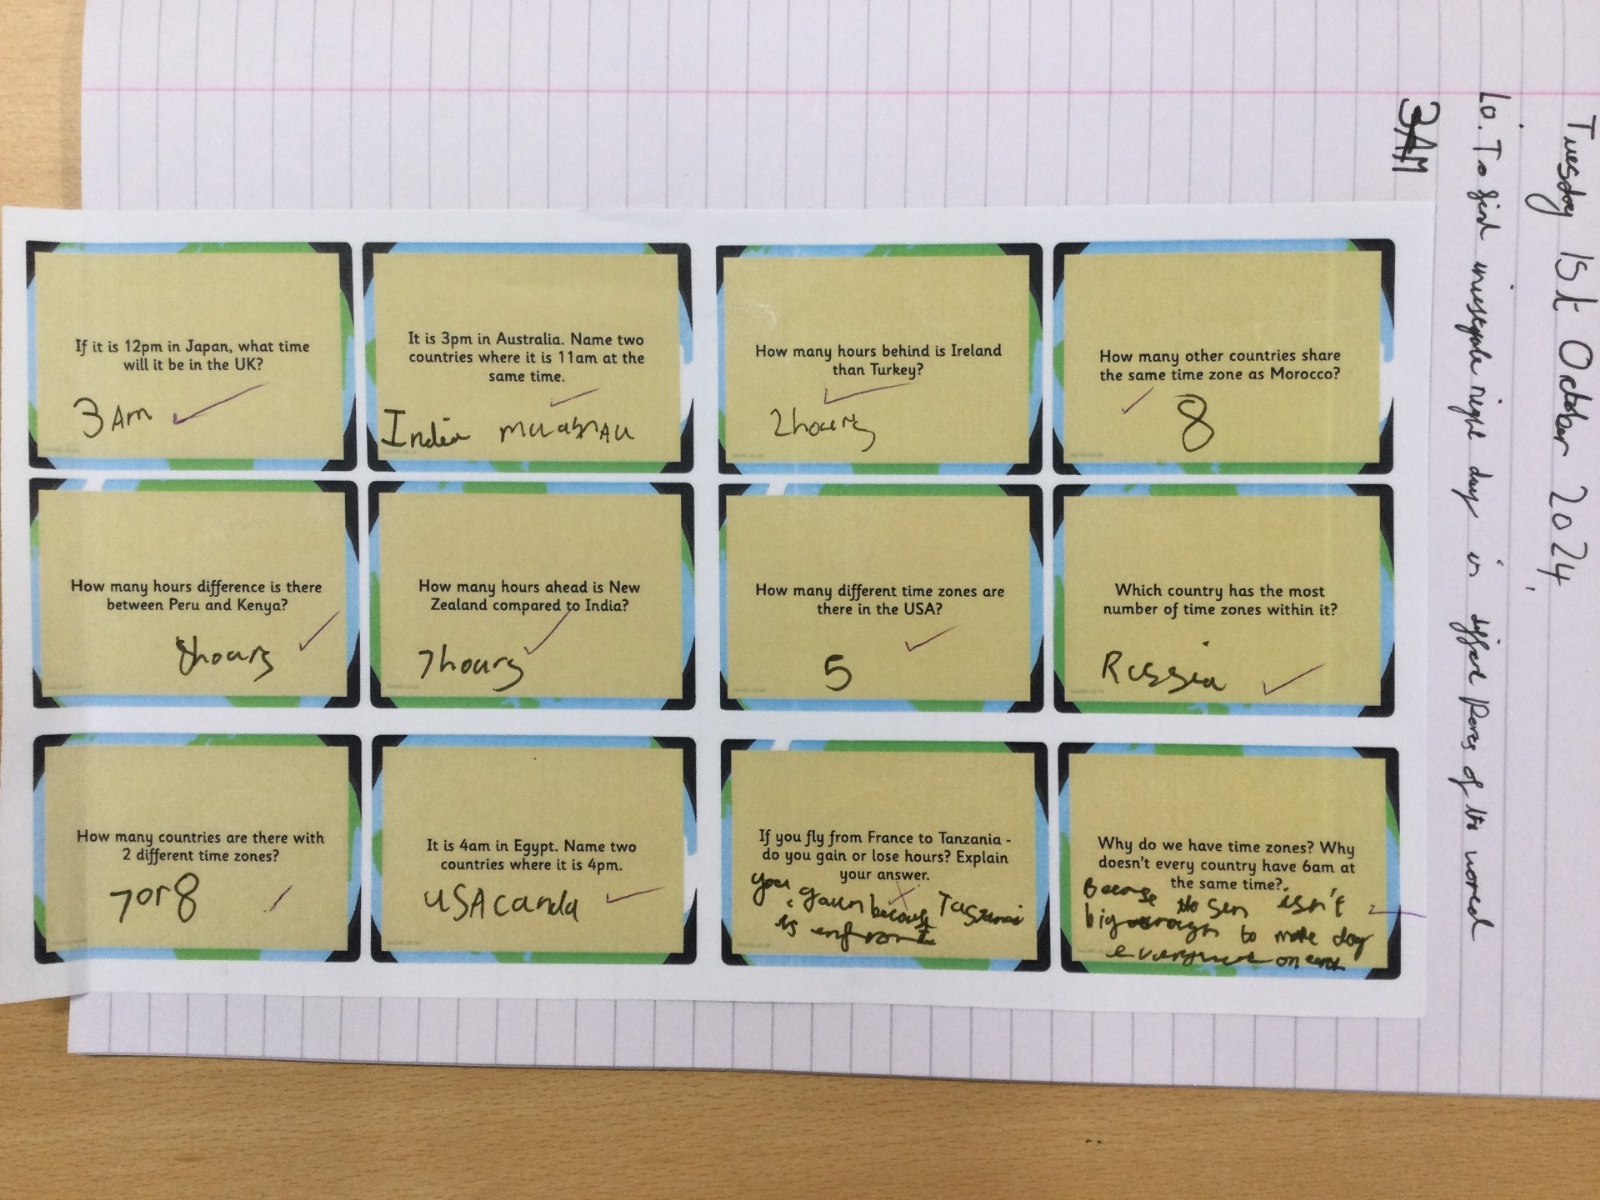 Tuesday 1st October 2024
Lo. To find night day in of
3AM
If it is 12pm in Japan, what time
will it be in the UK?
3 Am
It is 3pm in Australia. Name two
countries where it is 11am at the
same time.
India
How many hours behind is Ireland
than Turkey?
2hours
How many other countries share
the same time zone as Morocco?
8
How many hours difference is there
between Peru and Kenya?
8hours
How many hours ahead is New
Zealand compared to India?
7hours
How many different time zones are
there in the USA?
5
Which country has the most
number of time zones within it?
Russia
How many countries are there with
2 different time zones?
7or8
It is 4am in Egypt. Name two
countries where it is 4pm.
USA canda
If you fly from France to Tanzania -
do you gain or lose hours? Explain
your answer.
you gaun because
is
Why do we have time zones? Why
doesn't every country have 6am at
the same time?
isn't
to make day
on